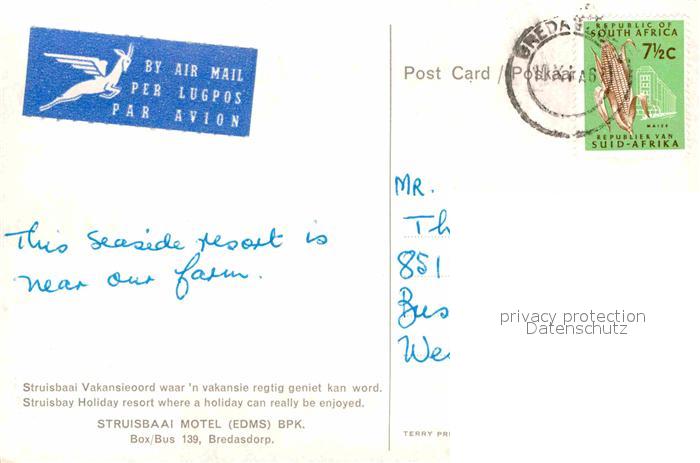 BY AIR MAIL
PER LUGPOS
PAR AVION
Post Card / Poskaart
REPUBLIC OF
SOUTH AFRICA
7½C
MAIZE
REPUBLIEK VAN
SUID-AFRIKA
This seaside resort is
near our farm.
MR.
Th
851
Bus
We
privacy protection
Datenschutz
Struisbaai Vakansieoord waar 'n vakansie regtig geniet kan word.
Struisbay Holiday resort where a holiday can really be enjoyed.
STRUISBAAI MOTEL (EDMS) BPK.
Box/Bus 139, Bredasdorp.
TERRY PRI